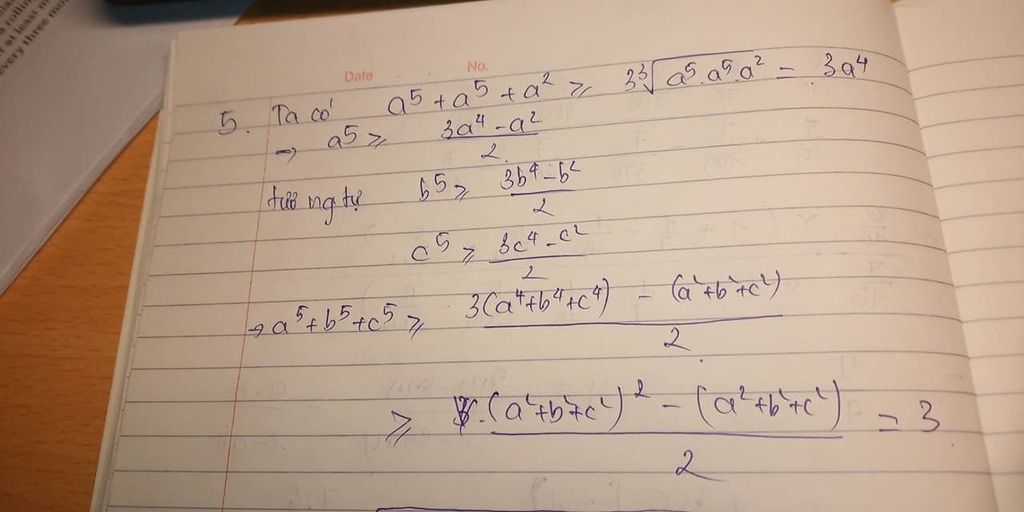 every three mo
Date No.
5. Ta có a⁵ + a⁵ + a² ≥ 3∛(a⁵.a⁵.a²) = 3a⁴
→ a⁵ ≥ (3a⁴ - a²)/2
tương tự b⁵ ≥ (3b⁴ - b²)/2
c⁵ ≥ (3c⁴ - c²)/2
→ a⁵ + b⁵ + c⁵ ≥ (3(a⁴ + b⁴ + c⁴) - (a² + b² + c²))/2
≥ ((a² + b² + c²)² - (a² + b² + c²))/2 = 3